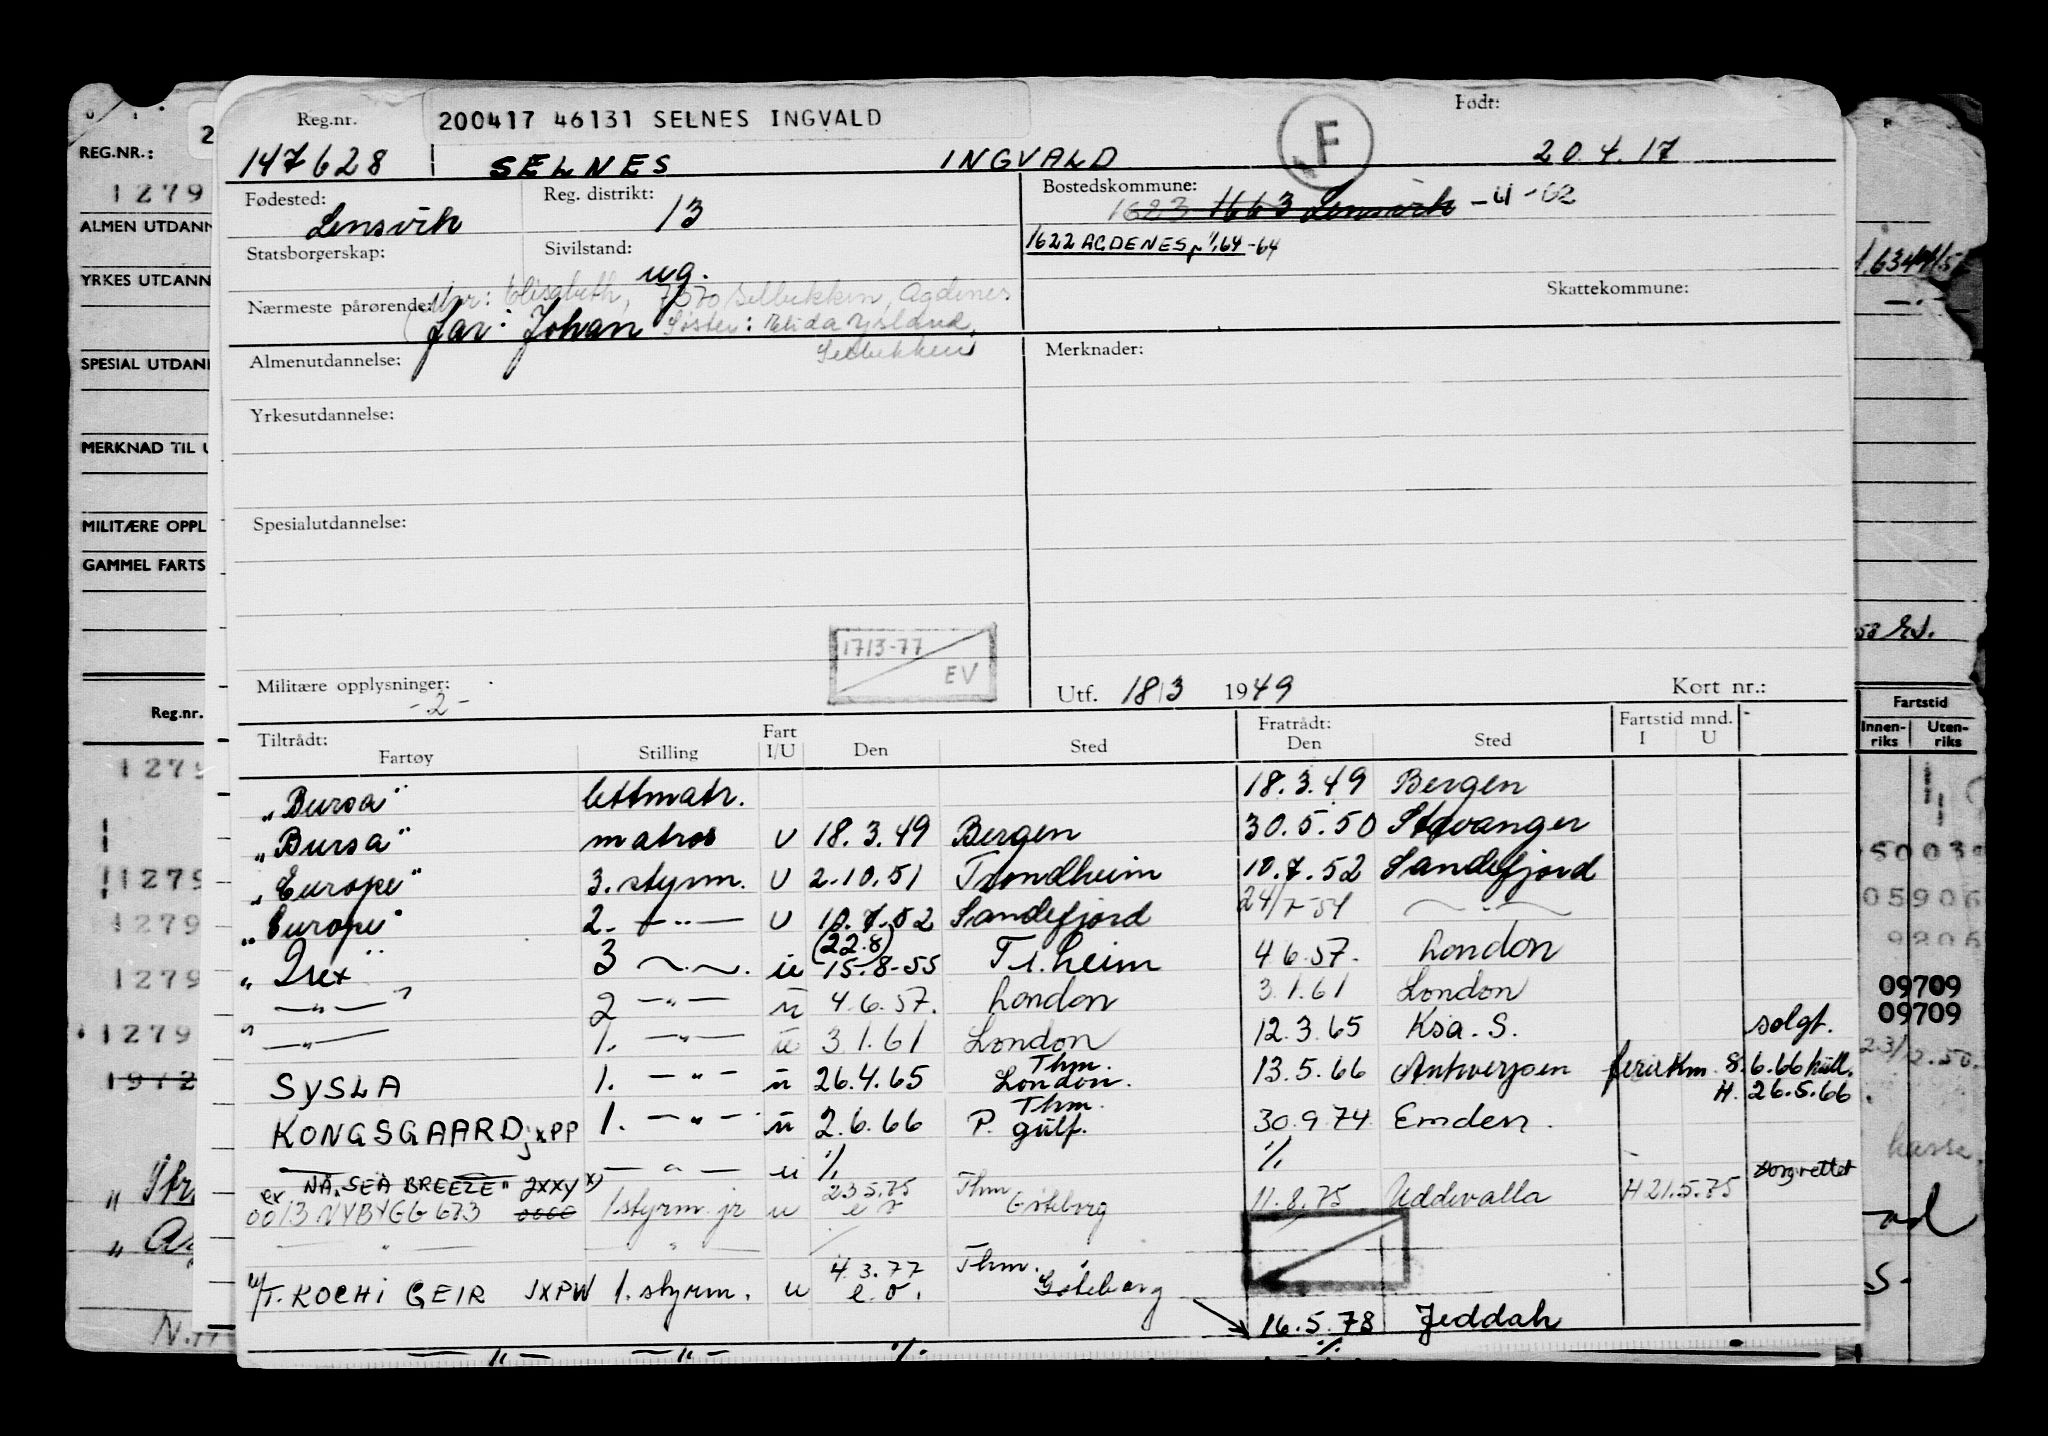 Reg.nr. 200417 46131 SELNES INGVALD F Født:
147628 SELNES INGVALD 20.4.17
Fødested: Lensvik Reg. distrikt: 13 Bostedskommune: 1623 1663 Lensvik - 61-62
1622 AGDENES, 1/1.64-64
Statsborgerskap: Sivilstand: ug.
Mor: Elisabeth, 7370 Selbekken, Agdenes
Skattekommune:
Nærmeste pårørende: Far: Johan Søster:
Selbekken
Almenutdannelse: Merknader:
Yrkesutdannelse:
Spesialutdannelse:
17/3-77
EV
Militære opplysninger: -2- Utf. 18/3 1949 Kort nr.:
Tiltrådt: Fartøy Stilling Fart I/U Den Sted Fratrådt: Den Sted Fartstid mnd. I U
"Bursa" lettmatr. 18.3.49 Bergen
"Bursa" matros U 18.3.49 Bergen 30.5.50 Stavanger
"Europe" 3. styrm. U 2.10.51 Trondheim 10.7.52 Sandefjord
"Europe" 2. —"— U 10.7.52 Sandefjord 24/7-54 —"—
(22.8)
"Irex" 3 —"— u 15.8-55 Tr.heim 4 6.57. London
"—"—" 2 —"— u 4.6.57. London 3.1.61 London
"—"— 1. —"— u 3.1.61 London 12.3.65 Ksa. S. solgt.
SYSLA 1. —"— u 26.4.65 Thm. London. 13.5.66 Antwerpen 8.6.66
H. 26.5.66
KONGSGAARD JXPP 1. —"— u 2.6.66 Thm. P. gulf. 30.9.74 Emden.
—"— u % %
NÅ "SEA BREEZE" JXXY x)
ex 0013 NYBYGG 673 1.styrm. jr u 23.5.75 e o Thm Göteborg 11.8.75 Uddevalla H 21.5.75
— " — — " —
M/T. KOCHI GEIR JXPW 1. styrm. u 4.3.77 e.o. Thm. Göteborg
16.5.78 Jeddah
—"— —"— % %
REG.NR.:
1279
ALMEN UTDANN
YRKES UTDANN
SPESIAL UTDANI
MERKNAD TIL U
MILITÆRE OPPL
GAMMEL FARTS
Reg.nr.
1279
1279
1279
1279
1279
Fartstid
Innen-riks Uten-riks
09709
09709